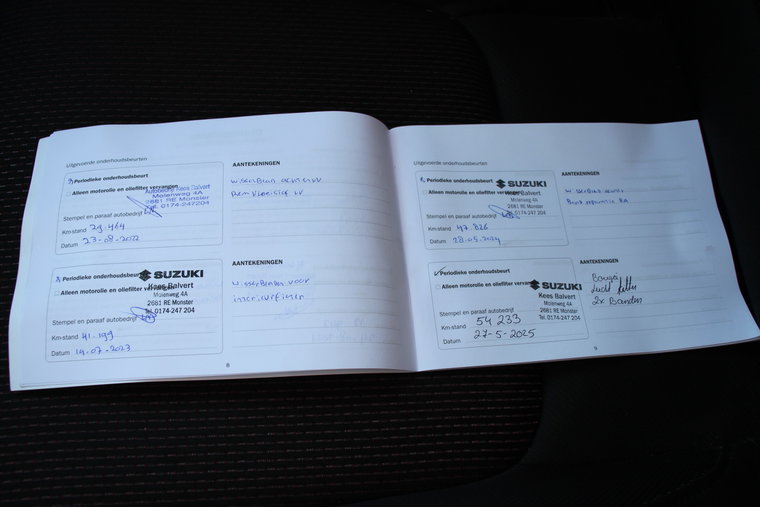 Uitgevoerde onderhoudsbeurten
Periodieke onderhoudsbeurt
Alleen motorolie en oliefilter vervangen
Autobedrijf Kees Balvert
Molenweg 4A
2681 RE Monster
Tel. 0174-247204
Stempel en paraaf autobedrijf
Km-stand 29.464
Datum 23-08-2022
AANTEKENINGEN
Remvloeistof vv
Periodieke onderhoudsbeurt
Alleen motorolie en oliefilter vervangen
SUZUKI
Kees Balvert
Molenweg 4A
2681 RE Monster
Tel. 0174-247 204
Stempel en paraaf autobedrijf
Km-stand 41.199
Datum 19-07-2023
AANTEKENINGEN
wisserbladen voor
8
Uitgevoerde onderhoudsbeurten
Periodieke onderhoudsbeurt
Alleen motorolie en oliefilter vervangen
SUZUKI
Kees Balvert
Molenweg 4A
2681 RE Monster
Tel. 0174-247 204
Stempel en paraaf autobedrijf
Km-stand 47.826
Datum 28.05.2024
AANTEKENINGEN
Periodieke onderhoudsbeurt
Alleen motorolie en oliefilter vervangen
SUZUKI
Kees Balvert
Molenweg 4A
2681 RE Monster
Tel. 0174-247 204
Stempel en paraaf autobedrijf
Km-stand 54 233
Datum 27-5-2025
AANTEKENINGEN
Bougie
Lucht filter
2x Banden
9